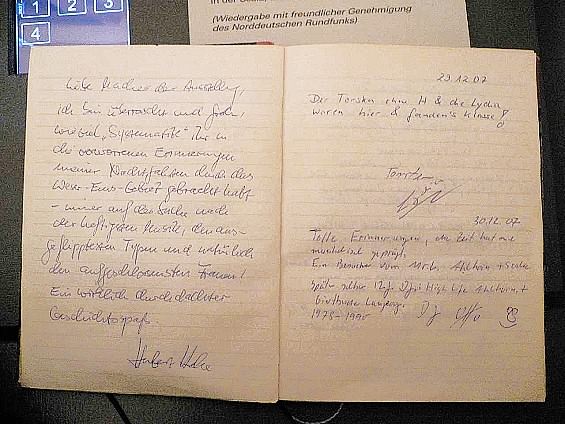 1 2 3
4
(Wiedergabe mit freundlicher Genehmigung
des Norddeutschen Rundfunks)
Liebe Macher der Ausstellung,
ich bin überrascht und froh,
wieviel „Systematik" Ihr in
die verworrenen Erinnerungen
meiner Nachtfahrten durch das
Weser-Ems-Gebiet gebracht habt
- immer auf der Suche nach
der heftigsten Musik, den aus-
geflipptesten Typen und natürlich
den aufgeschlossensten Frauen!
Ein wirklich durchdachter
Geschichtsspaß.
29.12.07
Der Torsten ohne H & die Lydia
waren hier & fanden's klasse!
Torsten
30.12.07
Tolle Erinnerungen, die Zeit hat mich
musikalisch geprägt.
Ein Besucher vom
später selber 12 J. DJ im High Life Ahlhorn +
1978-1990 DJ Otto